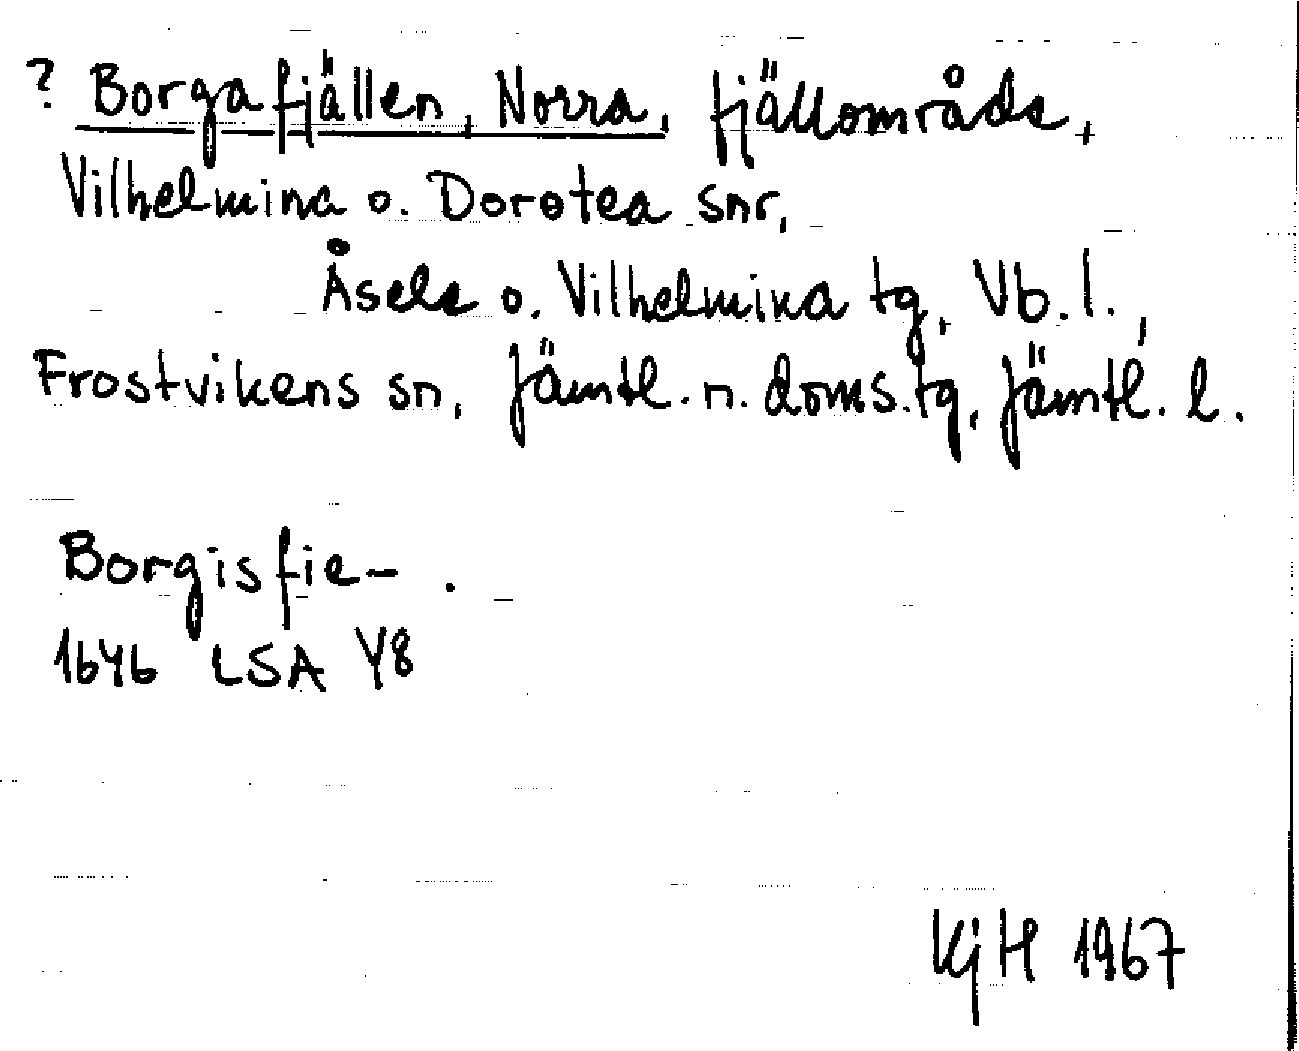 ? Borgafjällen, Norra, fjällområde,
Vilhelmina o. Dorotea snr,
Åsele o. Vilhelmina tg, Vb. l.,
Frostvikens sn, Jämtl. n. doms.tg, Jämtl. l.
Borgisfie- .
1646 LSA Y8
KjH 1967